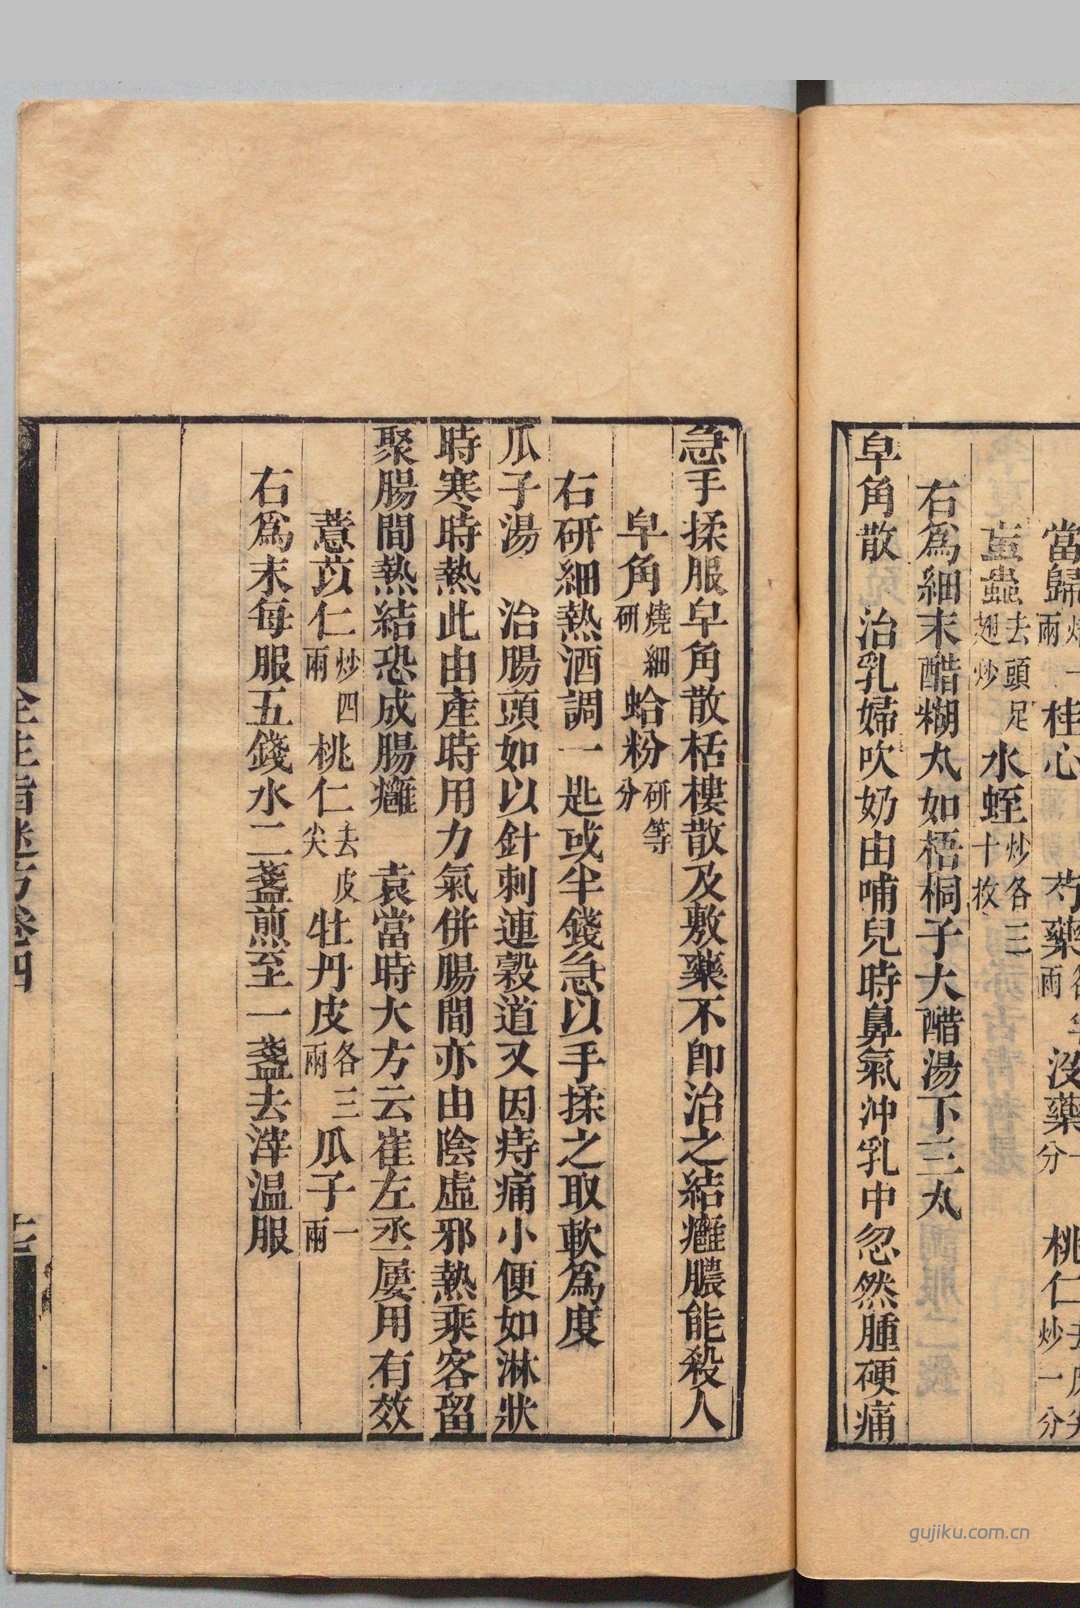 當歸炒一兩 桂心 芍藥各半兩 沒藥一分 桃仁去皮尖炒一分
䖟蟲去頭足翅炒 水蛭炒各三十枚
右爲細末醋糊丸如梧桐子大醋湯下三丸
皁角散 治乳婦吹奶由哺兒時鼻氣沖乳中忽然腫硬痛
急手揉服皁角散栝樓散及敷藥不卽治之結癰膿能殺人
皁角燒細研 蛤粉研等分
右研細熱酒調一匙或半錢急以手揉之取軟爲度
瓜子湯 治腸頭如以針刺連穀道又因痔痛小便如淋狀
時寒時熱此由產時用力氣併腸間亦由陰虛邪熱乘客留
聚腸間熱結恐成腸癰 袁當時大方云崔左丞屢用有效
薏苡仁炒四兩 桃仁去皮尖 牡丹皮各三兩 瓜子一兩
右爲末每服五錢水二盞煎至一盞去滓温服
全生指迷方卷四
gujiku.com.cn